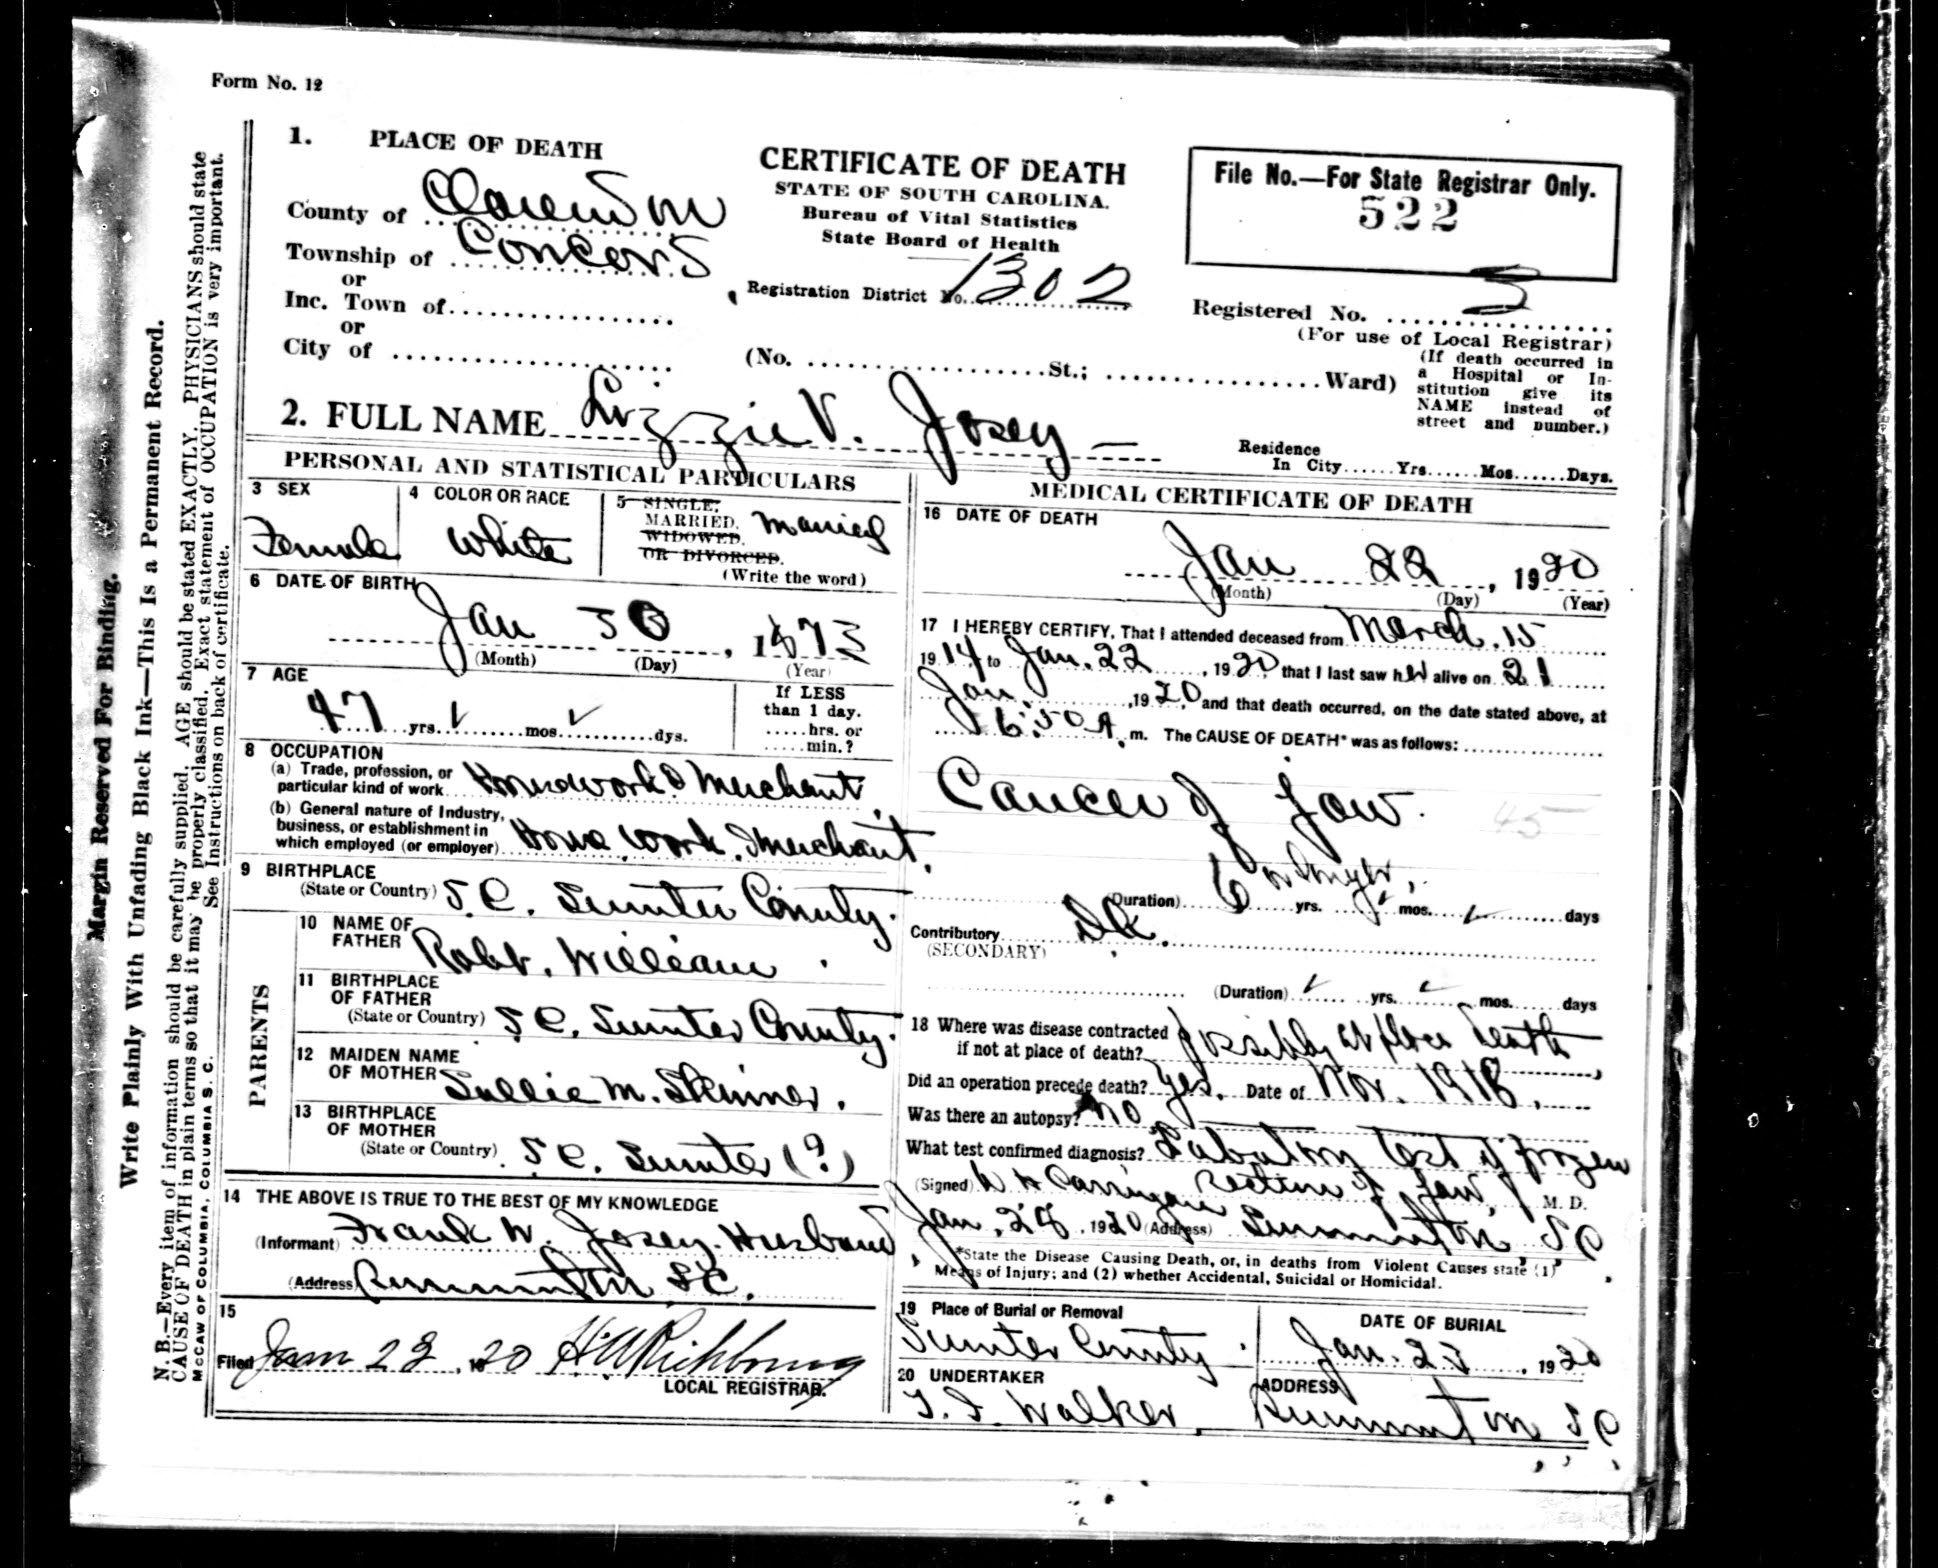 Form No. 12
1. PLACE OF DEATH
County of Clarendon
Township of Concord
or
Inc. Town of
or
City of
CERTIFICATE OF DEATH
STATE OF SOUTH CAROLINA.
Bureau of Vital Statistics
State Board of Health
Registration District No. 1302
File No.—For State Registrar Only.
522
Registered No. 5
(For use of Local Registrar)
(No. St.; Ward)
(If death occurred in
a Hospital or In-
stitution give its
NAME instead of
street and number.)
2. FULL NAME Lizzie V. Josey
Residence
In City Yrs. Mos. Days.
PERSONAL AND STATISTICAL PARTICULARS
3 SEX
Female
4 COLOR OR RACE
White
5 SINGLE,
MARRIED, Married
WIDOWED,
OR DIVORCED.
(Write the word)
6 DATE OF BIRTH
Jan 30, 1873
(Month) (Day) (Year)
7 AGE
47 yrs. mos. dys.
If LESS
than 1 day.
hrs. or
min.?
8 OCCUPATION
(a) Trade, profession, or
particular kind of work Housework & Merchant
(b) General nature of Industry,
business, or establishment in
which employed (or employer) House Work, Merchant.
9 BIRTHPLACE
(State or Country) S.C. Sumter County.
PARENTS
10 NAME OF
FATHER Robt. William
11 BIRTHPLACE
OF FATHER
(State or Country) S.C. Sumter County.
12 MAIDEN NAME
OF MOTHER Sallie M. Skinner.
13 BIRTHPLACE
OF MOTHER
(State or Country) S.C. Sumter (?)
14 THE ABOVE IS TRUE TO THE BEST OF MY KNOWLEDGE
(Informant) Frank W. Josey. Husband
(Address) Summerton S.C.
15
Filed Jan 23, 1920 H.W. Richbourg
LOCAL REGISTRAR.
MEDICAL CERTIFICATE OF DEATH
16 DATE OF DEATH
Jan 22, 1920
(Month) (Day) (Year)
17 I HEREBY CERTIFY, That I attended deceased from March. 15
1914 to Jan. 22, 1920 that I last saw her alive on 21
Jan., 1920, and that death occurred, on the date stated above, at
6:30 A. m. The CAUSE OF DEATH* was as follows:
Cancer of Jaw.
45
(Duration) 6 yrs. mos. days
Contributory
(SECONDARY)
(Duration) yrs. mos. days
18 Where was disease contracted
if not at place of death? Possibly at place death
Did an operation precede death? Yes. Date of Nov. 1918.
Was there an autopsy? No
What test confirmed diagnosis? Labratory test of frozen
section of Jaw,
(Signed) W H Carrigan M. D.
Jan. 28, 1920 (Address) Summerton, S C
*State the Disease Causing Death, or, in deaths from Violent Causes state (1)
Means of Injury; and (2) whether Accidental, Suicidal or Homicidal.
19 Place of Burial or Removal
Sumter County.
DATE OF BURIAL
Jan. 23, 1920
20 UNDERTAKER
ADDRESS
Walker, Summerton S C
Margin Reserved For Binding.
Write Plainly With Unfading Black Ink—This Is a Permanent Record.
N. B.—Every item of information should be carefully supplied. AGE should be stated EXACTLY. PHYSICIANS should state
CAUSE OF DEATH in plain terms so that it may be properly classified. Exact statement of OCCUPATION is very important.
See Instructions on back of certificate.
McCAW OF COLUMBIA, COLUMBIA S. C.